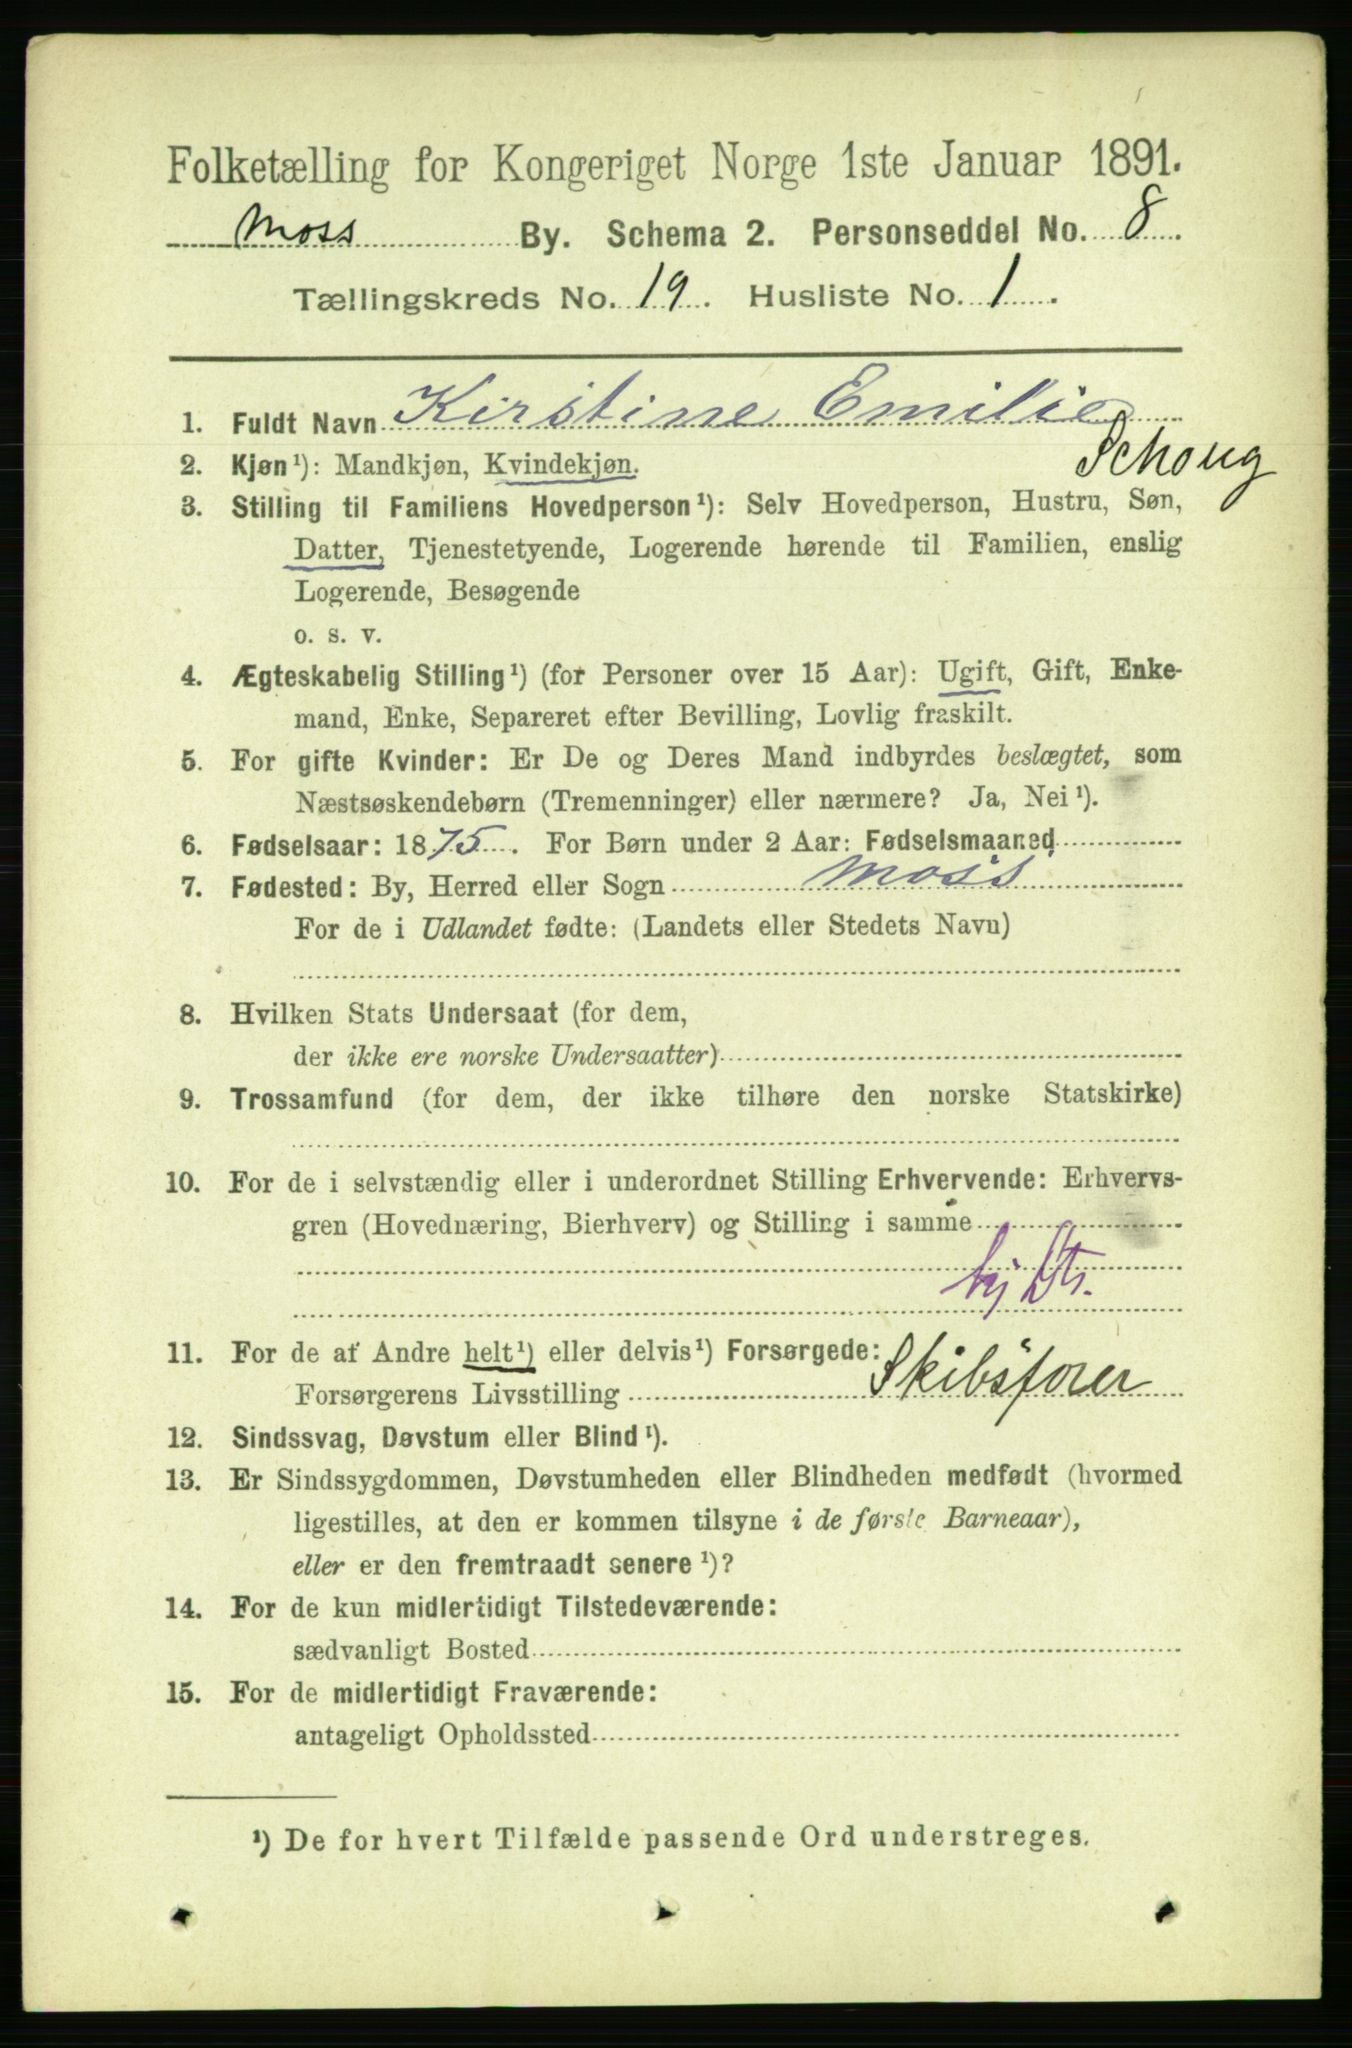 Folketælling for Kongeriget Norge 1ste Januar 1891.
Moss By. Schema 2. Personseddel No. 8.
Tællingskreds No. 19. Husliste No. 1.
1. Fuldt Navn Kirstine Emilie
Schoug
2. Kjøn¹): Mandkjøn, Kvindekjøn.
3. Stilling til Familiens Hovedperson¹): Selv Hovedperson, Hustru, Søn,
Datter, Tjenestetyende, Logerende hørende til Familien, enslig
Logerende, Besøgende
o. s. v.
4. Ægteskabelig Stilling¹) (for Personer over 15 Aar): Ugift, Gift, Enke-
mand, Enke, Separeret efter Bevilling, Lovlig fraskilt.
5. For gifte Kvinder: Er De og Deres Mand indbyrdes beslægtet, som
Næstsøskendebørn (Tremenninger) eller nærmere? Ja, Nei¹).
6. Fødselsaar: 1875. For Børn under 2 Aar: Fødselsmaaned
7. Fødested: By, Herred eller Sogn Moss
For de i Udlandet fødte: (Landets eller Stedets Navn)
8. Hvilken Stats Undersaat (for dem,
der ikke ere norske Undersaatter)
9. Trossamfund (for dem, der ikke tilhøre den norske Statskirke)
10. For de i selvstændig eller i underordnet Stilling Erhvervende: Erhvervs-
gren (Hovednæring, Bierhverv) og Stilling i samme
11. For de af Andre helt¹) eller delvis¹) Forsørgede:
Forsørgerens Livsstilling Skibsfører
12. Sindssvag, Døvstum eller Blind¹).
13. Er Sindssygdommen, Døvstumheden eller Blindheden medfødt (hvormed
ligestilles, at den er kommen tilsyne i de første Barneaar),
eller er den fremtraadt senere¹)?
14. For de kun midlertidigt Tilstedeværende:
sædvanligt Bosted
15. For de midlertidigt Fraværende:
antageligt Opholdssted
¹) De for hvert Tilfælde passende Ord understreges.